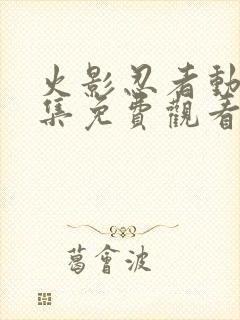 火影忍者動
集免費觀看
葛會波